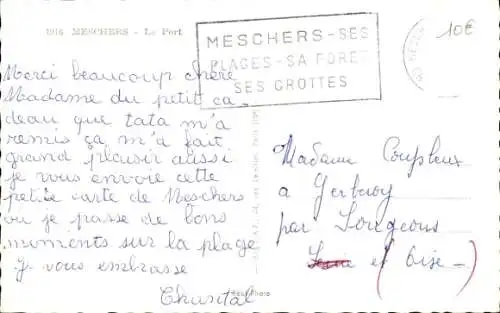 1916 MESCHERS - Le Port
MESCHERS-SES
PLAGES-SA FORET
SES GROTTES
10€
Merci beaucoup chère
Madame du petit ca_
deau que tata m'a
remis ça m'a fait
grand plaisir aussi
je vous envoie cette
petite carte de Meschers
ou je passe de bons
moments sur la plage
Je vous embrasse
Chantal
Madame Coupleux
a Gerberoy
par Songeons
(Oise_)